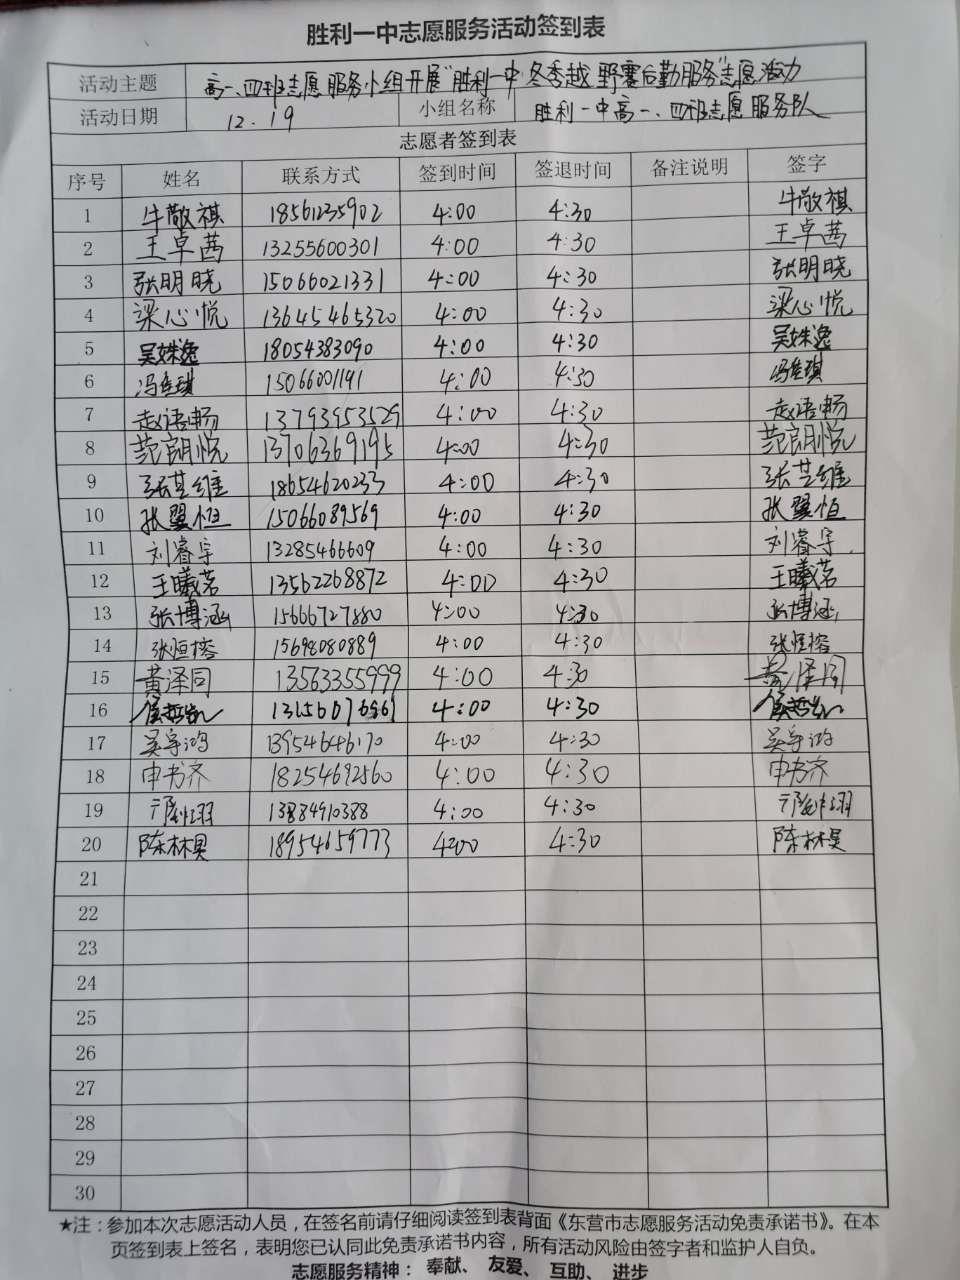 胜利一中志愿服务活动签到表
活动主题 高一、四班志愿服务小组开展"胜利一中"冬季越野赛后勤服务"志愿活力
活动日期 12.19 小组名称 胜利一中高一、四班志愿服务队
志愿者签到表
序号 姓名 联系方式 签到时间 签退时间 备注说明 签字
1 牛敬祺 18561235902 4:00 4:30 牛敬祺
2 王卓茜 13255600301 4:00 4:30 王卓茜
3 张明晓 15066021331 4:00 4:30 张明晓
4 梁心悦 13645465320 4:00 4:30 梁心悦
5 吴姝逸 18054383090 4:00 4:30 吴姝逸
6 15066001191 4:00 4:30
7 赵语畅 13793953529 4:00 4:30 赵语畅
8 范朗悦 13706369195 4:00 4:30 范朗悦
9 张芸维 18654620233 4:00 4:30 张芸维
10 张翼恒 15066089569 4:00 4:30 张翼恒
11 刘睿宇 13285466609 4:00 4:30 刘睿宇
12 王曦茗 13562268872 4:00 4:30 王曦茗
13 张博涵 15666727880 4:00 4:30 张博涵
14 张恒榕 15698080889 4:00 4:30 张恒榕
15 黄泽同 13563355999 4:00 4:30 黄泽同
16 4:00 4:30
17 吴宇鸿 13954646170 4:00 4:30 吴宇鸿
18 申书齐 18254692560 4:00 4:30 申书齐
19 13884910388 4:00 4:30
20 陈林昊 18954659773 4:00 4:30 陈林昊
21
22
23
24
25
26
27
28
29
30
★注：参加本次志愿活动人员，在签名前请仔细阅读签到表背面《东营市志愿服务活动免责承诺书》。在本
页签到表上签名，表明您已认同此免责承诺书内容，所有活动风险由签字者和监护人自负。
志愿服务精神： 奉献、 友爱、 互助、 进步